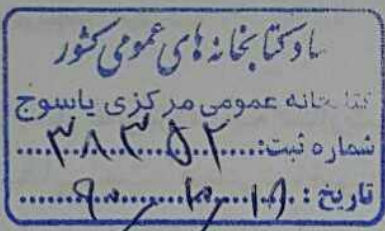 نهاد کتابخانه های عمومی کشور
کتابخانه عمومی مرکزی یاسوج
شماره ثبت: ۳۸۳۵۲
تاریخ :